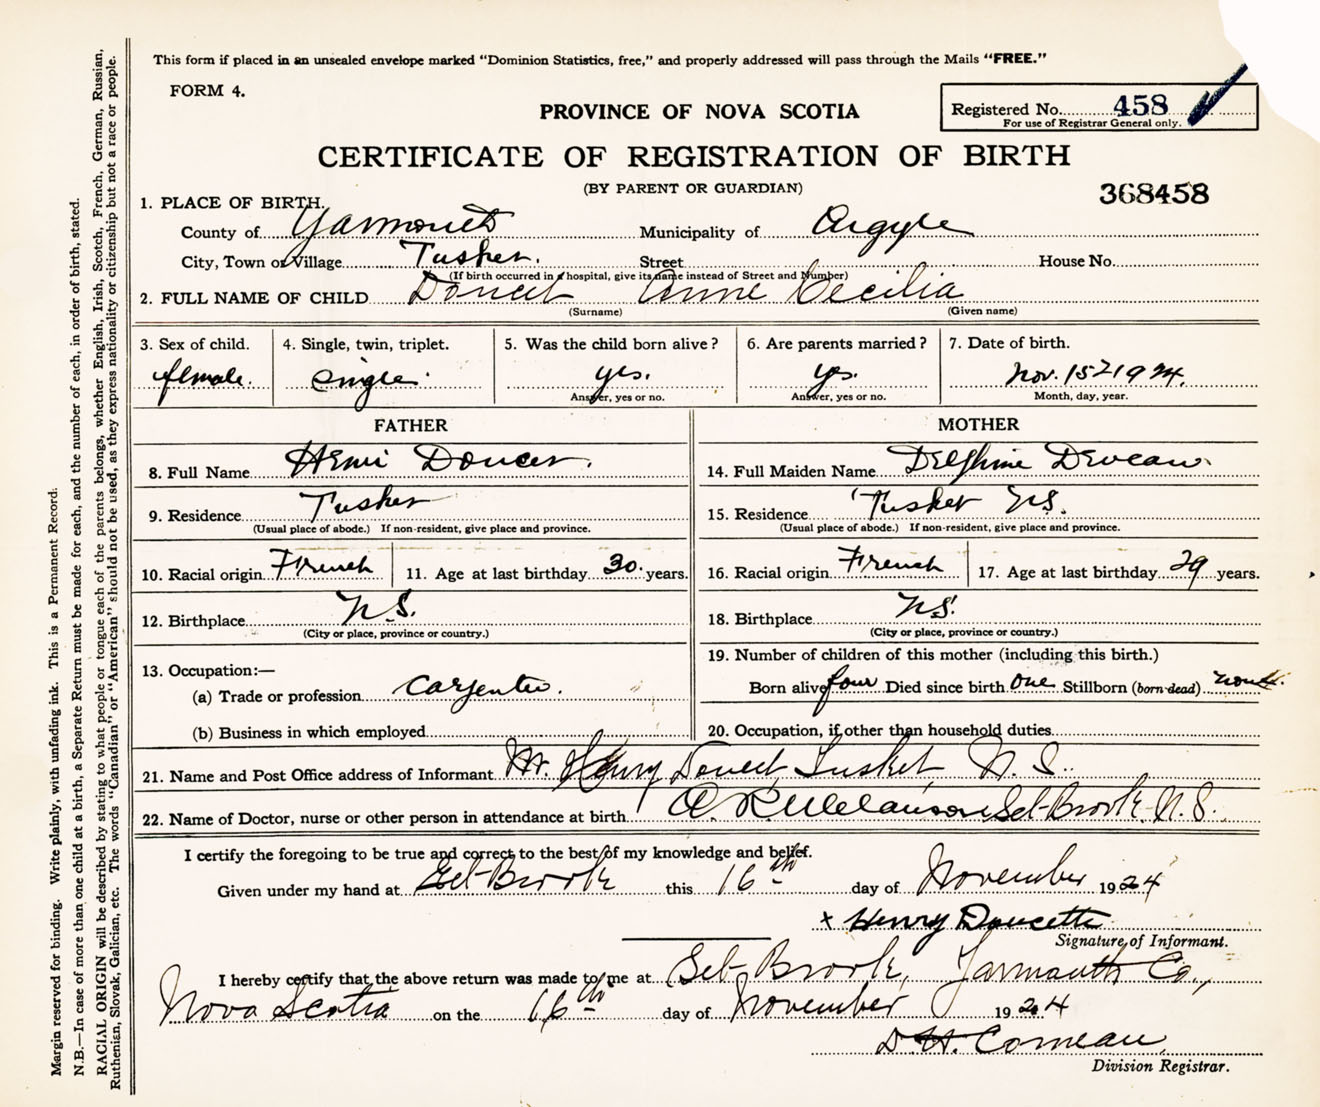 This form if placed in an unsealed envelope marked "Dominion Statistics, free," and properly addressed will pass through the Mails "FREE."
FORM 4.
PROVINCE OF NOVA SCOTIA
Registered No. 458
For use of Registrar General only.
CERTIFICATE OF REGISTRATION OF BIRTH
(BY PARENT OR GUARDIAN)
368458
1. PLACE OF BIRTH.
County of Yarmouth Municipality of Argyle
City, Town or Village Tusket. Street House No.
(If birth occurred in a hospital, give its name instead of Street and Number)
2. FULL NAME OF CHILD Doucet Anne Cecilia
(Surname) (Given name)
3. Sex of child. 4. Single, twin, triplet. 5. Was the child born alive? 6. Are parents married? 7. Date of birth.
female. single. yes. yes. Nov. 15 1924.
Answer, yes or no. Answer, yes or no. Month, day, year.
FATHER MOTHER
8. Full Name Henri Doucet. 14. Full Maiden Name Delphine Deveau
9. Residence Tusket 15. Residence Tusket N.S.
(Usual place of abode.) If non-resident, give place and province. (Usual place of abode.) If non-resident, give place and province.
10. Racial origin French 11. Age at last birthday 30. years. 16. Racial origin French 17. Age at last birthday 29 years.
12. Birthplace N.S. 18. Birthplace N.S.
(City or place, province or country.) (City or place, province or country.)
13. Occupation:—
19. Number of children of this mother (including this birth.)
(a) Trade or profession Carpenter. Born alive four Died since birth one Stillborn (born dead)
(b) Business in which employed 20. Occupation, if other than household duties
21. Name and Post Office address of Informant Mr. Henry Doucet Tusket N.S.
22. Name of Doctor, nurse or other person in attendance at birth A. R. Melanson Eel-Brook, N.S.
I certify the foregoing to be true and correct to the best of my knowledge and belief.
Given under my hand at Eel-Brook this 16th day of November 1924
x Henry Doucette
Signature of Informant.
I hereby certify that the above return was made to me at Eel-Brook, Yarmouth Co.,
Nova Scotia on the 16th day of November 1924
D. H. Comeau
Division Registrar.
Margin reserved for binding. Write plainly, with unfading ink. This is a Permanent Record.
N.B.—In case of more than one child at a birth, a Separate Return must be made for each, and the number of each, in order of birth, stated.
RACIAL ORIGIN will be described by stating to what people or tongue each of the parents belongs, whether English, Irish, Scotch, French, German, Russian,
Ruthenian, Slovak, Galician, etc. The words "Canadian" or "American" should not be used, as they express nationality or citizenship but not a race or people.